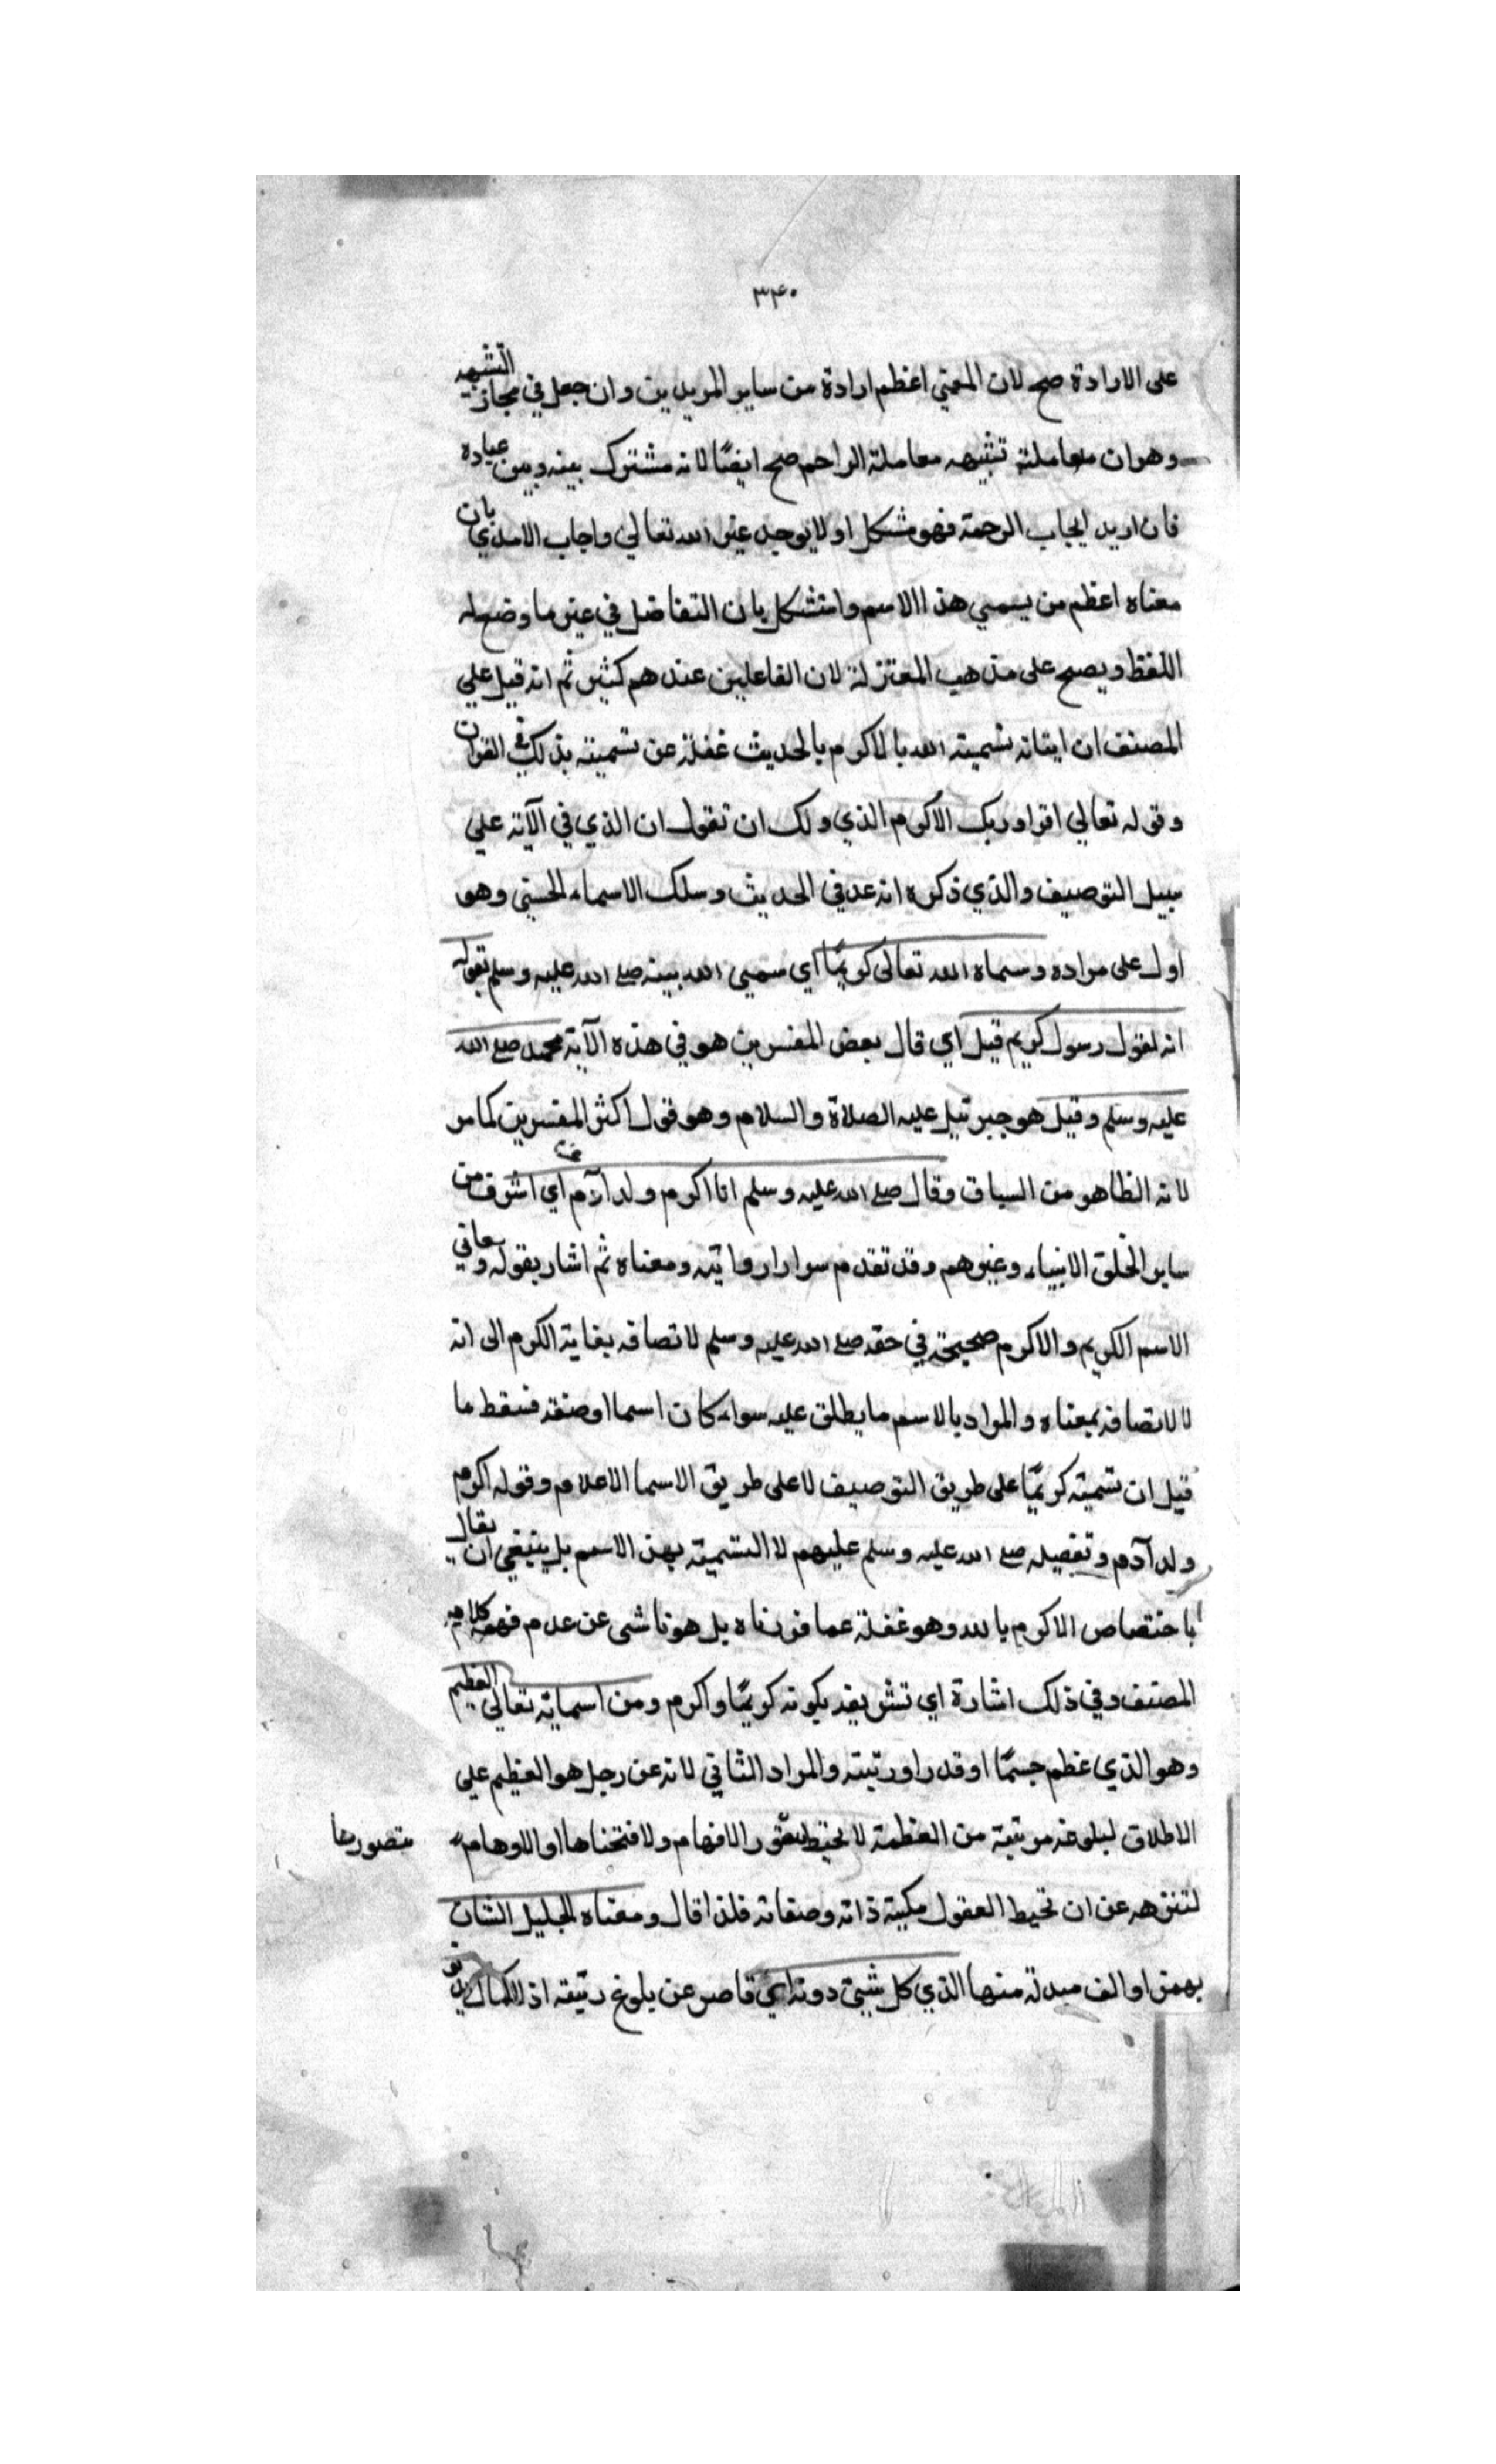 ٣٤٠
على الارادة صح لان المعني اعظم ارادة من ساير المريدين وان جعل في مجاز التشبيه
وهو ان معاملته تشبيه معاملة الراحم صح ايضًا لانه مشترك بينه وبين عباده
فان اريد ايجاب الرحمة فهو مشكل اولا يوجد غير الله تعالي واجاب الامدي بان
معناه اعظم من يسمي هذا الاسم واستشكل بان التفاضل في غير ما وضع له
اللفظ ويصح على مذهب المعتزلة لان الفاعلين عندهم كثير ثم انه قيل علي
المصنف ان اثباته تسميته الله بالاكرم بالحديث غفلة عن تسميته بذلك في القران
وقوله تعالي اقرا وربك الاكرم الذي ولك ان تقول ان الذي في الآية علي
سبيل التوصيف والذي ذكره انه عد في الحديث وسلك الاسماء الحسني وهو
اول على مراده وسماه الله تعالى كريمًا اي سمي الله نبيه صلى الله عليه وسلم بقوله
انه لقول رسول كريم قيل اي قال بعض المفسرين هو في هذه الآية محمد صلى الله
عليه وسلم وقيل هو جبرئيل عليه الصلاة والسلام وهو قول اكثر المفسرين كما مر
لانه الظاهر من السياق وقال صلى الله عليه وسلم انا اكرم ولد آدم اي اشرف من
ساير الخلق الانبياء وغيرهم وقد تقدم سوارا روايته ومعناه ثم اشار بقوله ومعاني
الاسم الكريم والاكرم صحيحة في حقه صلى الله عليه وسلم لاتصافه بغاية الكرم الى انه
لا لاتصافه بمعناه والمراد بالاسم ما يطلق عليه سواء كان اسما او صفة فسقط ما
قيل ان تسميته كريمًا على طريق التوصيف لا على طريق الاسما الاعلام وقوله اكرم
ولد آدم وتفضيله صلى الله عليه وسلم عليهم لا التسمية بهذ الاسم بل ينبغي ان يقال
باختصاص الاكرم بالله وهو غفلة عما قررناه بل هو ناشى عن عدم فهمه كلام
المصنف وفي ذلك اشارة اي تشريفه بكونه كريمًا واكرم ومن اسمايه تعالى العظيم
وهو الذي عظم جسمًا او قدرا ورتبته والمراد الثاني لانه عز رجل هو العظيم علي
الاطلاق لبلوغه مرتبة من العظمة لا تحيط الافهام ولا او الاوهام متصورها
لتنزهه عن ان تحيط العقول بكنه ذاته وصفاته فلذا قال ومعناه الجليل الشان
بهمزة او الف مبدلة منها الذي كل شيئ دونه اي قاصر عن بلوغ رتبته اذ الكمال